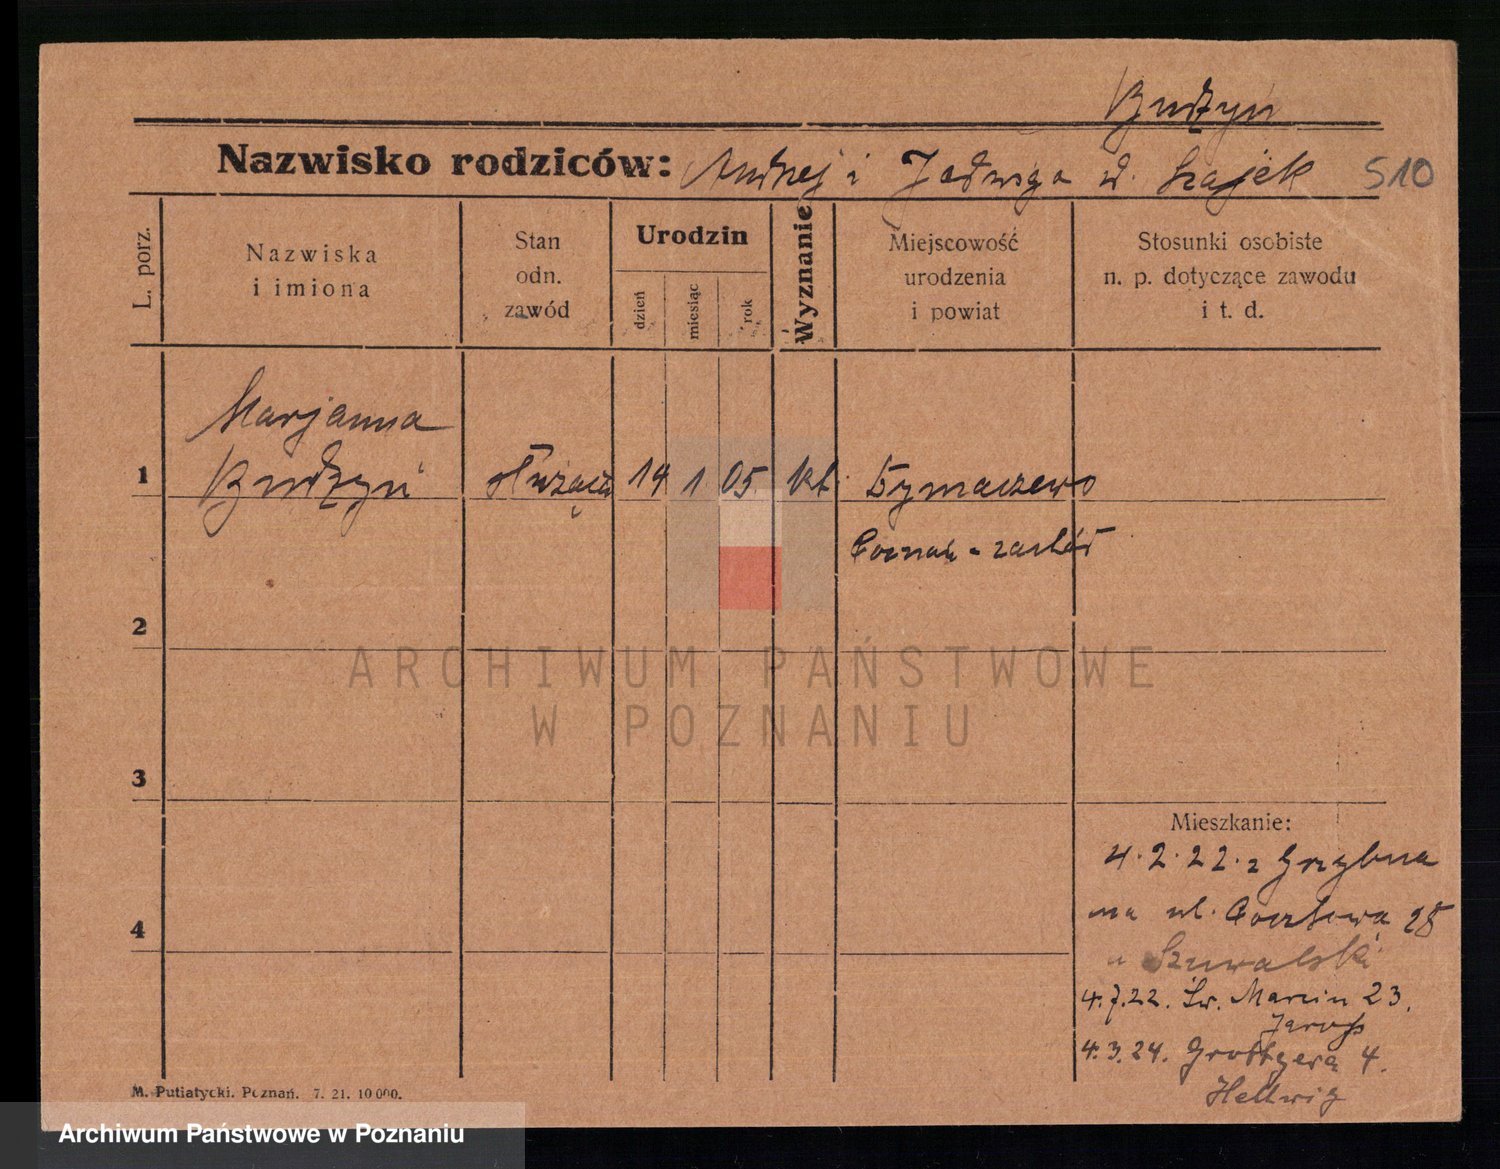 Budzyń
Nazwisko rodziców: Andrzej i Jadwiga d. Szajek 510
L. porz.
Nazwiska
i imiona
Stan
odn.
zawód
Urodzin
dzień
miesiąc
rok
Wyznanie
Miejscowość
urodzenia
i powiat
Stosunki osobiste
n. p. dotyczące zawodu
i t. d.
Marjanna
1 Budzyń służąca 14 1 05 kt. Tymaczewo
Poznań - zachód
2
ARCHIWUM PAŃSTWOWE
W POZNANIU
3
Mieszkanie:
4.2.22. z Grzybna
na ul. Pocztowa 28
4
u Szuwalski
4.7.22. Św. Marcin 23.
4.3.24. Grottgera 4.
Hellwig
M. Putiatycki. Poznań. 7. 21. 10 000.
Archiwum Państwowe w Poznaniu